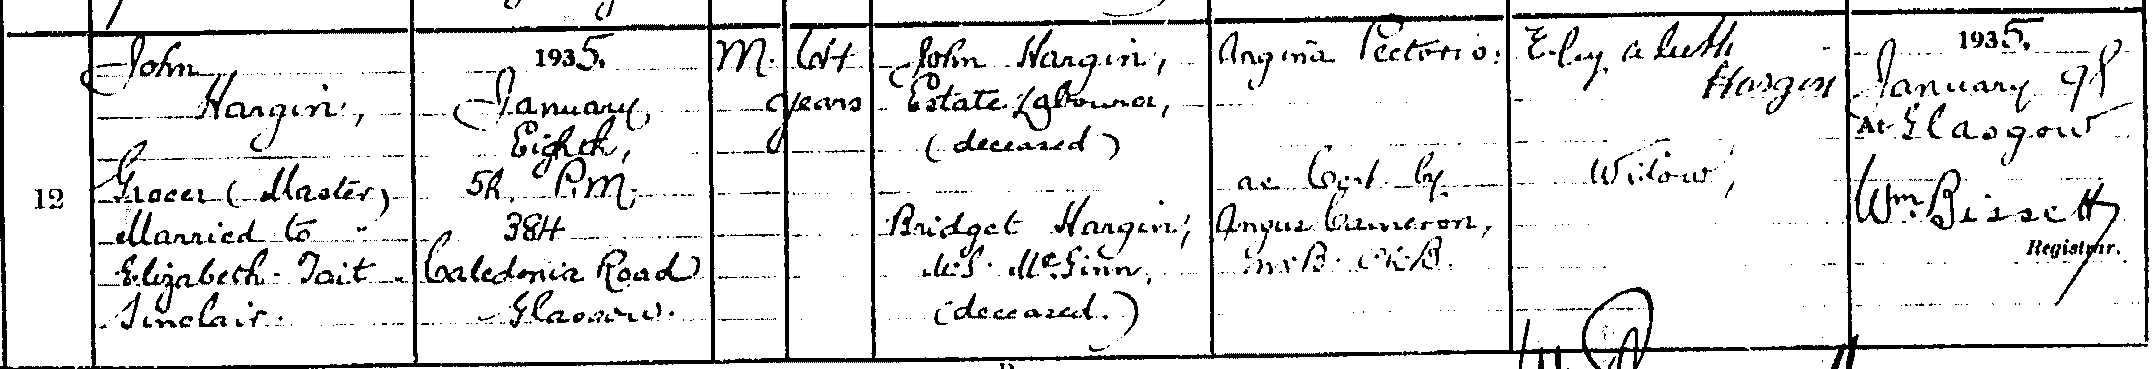 12
John
Hargin,
Grocer (Master)
Married to
Elizabeth Tait
Sinclair.
1935.
January
Eighth,
5h. P.M.
384
Caledonia Road
Glasgow.
M.
64
years
John Hargin,
Estate Labourer,
(deceased)
Bridget Hargin,
M.S. McGinn.
(deceased.)
Angina Pectoris.
as Cert. by
Angus Cameron,
M.B. Ch.B.
Elizabeth
Hargin
Widow,
1935.
January 9th
At Glasgow
Wm. Bissett
Registrar.